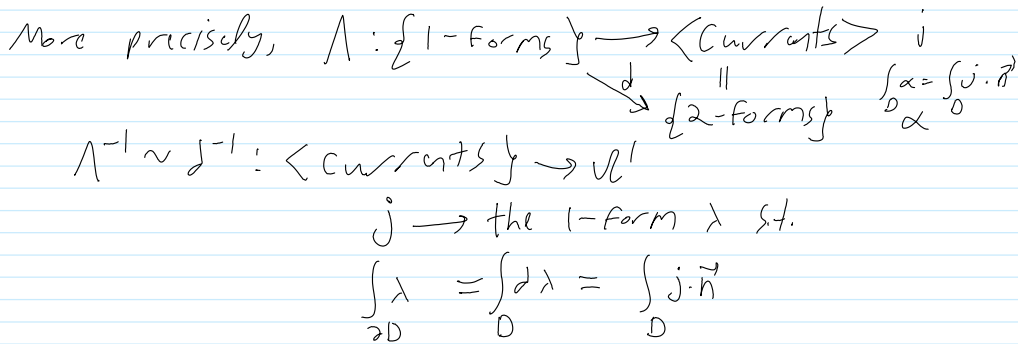 More precisely, Λ : {1-forms} ⟶ <currents> j
↘d || ∫_D α = ∫_D j·n⃗
{2-forms} α
Λ⁻¹ ~ d⁻¹ : <currents} → Ω¹
j ⟶ the 1-form λ s.t.
∫_∂D λ = ∫_D dλ = ∫_D j·n⃗